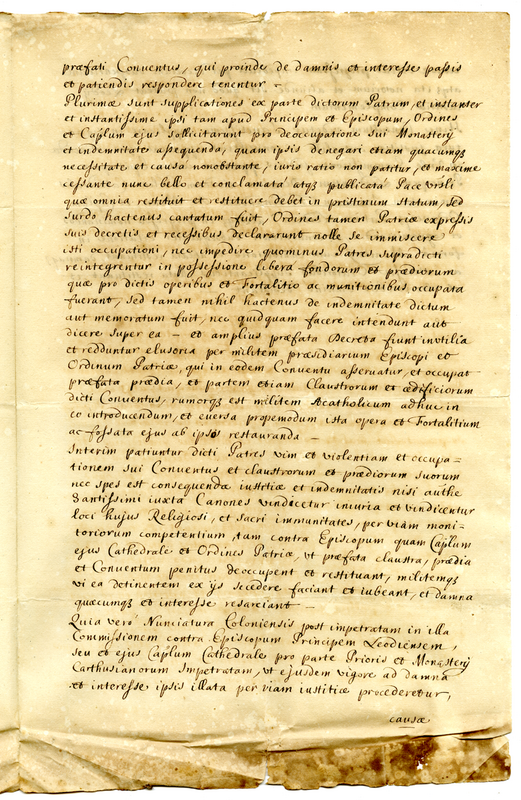 præfati Conventus, qui proinde de damnis et interesse passis
et patiendis respondere tenentur -
Plurimæ sunt supplicationes ex parte dictorum Patrum, et instanter
et instantissime ipsi tam apud Principem et Episcopum, Ordines
et Caplum ejus sollicitarunt pro deoccupatione sui Monasterij
et indemnitate assequenda, quam ipsis denegari etiam quacumq
necessitate et causa nonobstante, iuris ratio non patitur, et maxime
cessante nunc bello et conclamatâ atq publicatâ Pace vrsli
quæ omnia restituit et restituere debet in pristinum statum, sed
surdo hactenus cantatum fuit, Ordines tamen Patriæ expressis
suis decretis et recessibus declararunt nolle se immiscere
isti occupationi, nec impedire quominus Patres supradicti
reintegrentur in possessione libera fundorum et prædiorum
quæ pro dictis operibus et Fortalitio ac munitionibus occupata
fuerant, sed tamen nihil hactenus de indemnitate dictum
aut memoratum fuit, nec quidquam facere intendunt aut
dicere super ea - et amplius præfata Decreta fiunt invtilia
et redduntur elusoria per militem præsidiarium Episcopi et
Ordinum Patriæ, qui in eodem Conventu asservatur, et occupat
præfata prædia, et partem etiam Claustrorum et ædificiorum
dicti Conventus, rumorq est militem Acatholicum adhuc in
eo introducendum, et eversa propemodum ista opera et Fortalitium
ac fossata ejus ab ipso restauranda -
Interim patiuntur dicti Patres vim et violentiam et occupa=
tionem sui Conventus et claustrorum et prædiorum suorum
nec spes est consequendæ iustitiæ et indemnitatis nisi authe
Sanctissimi iuxta Canones vindicetur iniuria et vindicentur
loci hujus Religiosi, et sacri immunitates, per viam moni-
toriorum competentium, tam contra Episcopum quam Caplum
ejus Cathedrale et Ordines Patriæ, vt præfata claustra, prædia
et Conventum penitus deoccupent et restituant, militemq
vi ea detinentem ex ijs secedere faciant et iubeant, et damna
quæcumq et interesse resarciant -
Quia verò Nunciatura Coloniensis post impetratam in illa
Commissionem contra Episcopum Principem Leodiensem,
seu et ejus Caplum Cathedrale pro parte Prioris et Monasterij
Carthusianorum Impetratam, vt ejusdem vigore ad damna
et interesse ipsis illata per viam iustitiæ procederetur,
causæ